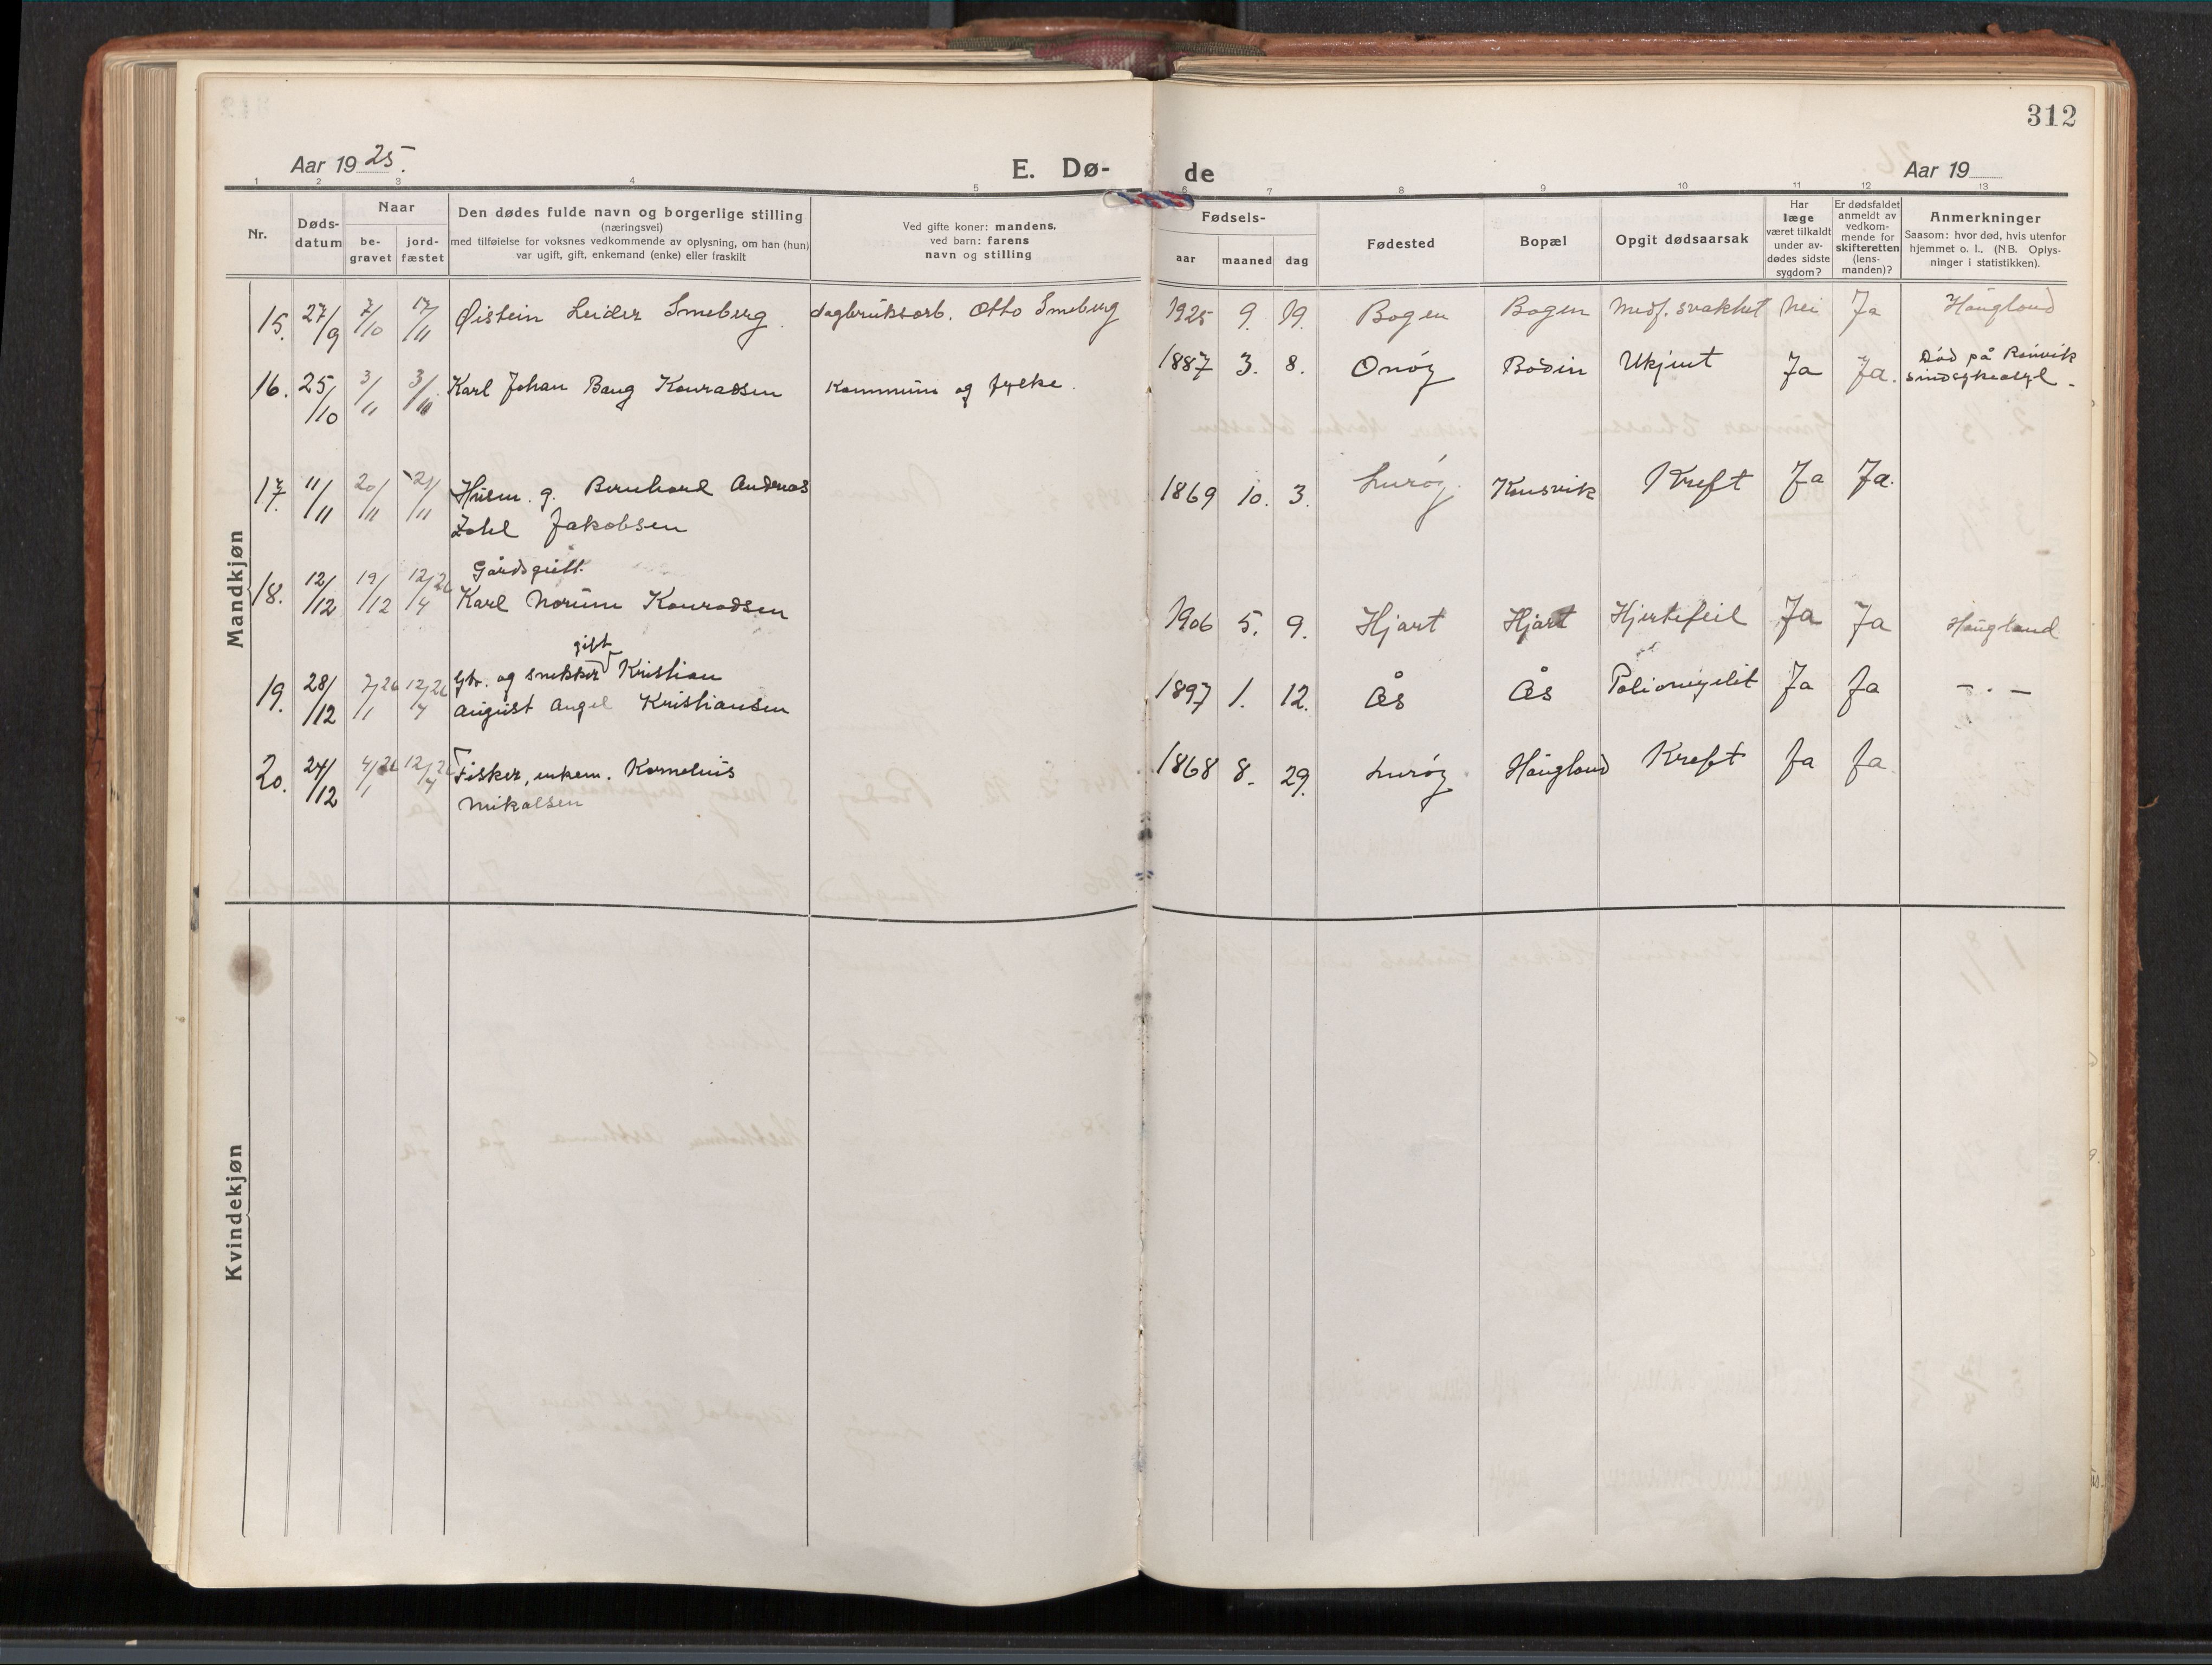 312
Aar 19 25.
E. Dø-
de
Aar 19
1 2 3 4 5 6 7 8 9 10 11 12 13
Nr.
Døds-
datum
Naar
be-
gravet
jord-
fæstet
Den dødes fulde navn og borgerlige stilling
(næringsvei)
med tilføielse for voksnes vedkommende av oplysning, om han (hun)
var ugift, gift, enkemand (enke) eller fraskilt
Ved gifte koner: mandens,
ved barn: farens
navn og stilling
Fødsels-
aar maaned dag
Fødested
Bopæl
Opgit dødsaarsak
Har
læge
været tilkaldt
under av-
dødes sidste
sygdom?
Er dødsfaldet
anmeldt av
vedkom-
mende for
skifteretten
(lens-
manden)?
Anmerkninger
Saasom: hvor død, hvis utenfor
hjemmet o. l., (NB. Oplys-
ninger i statistikken).
Mandkjøn
15. 27/9 7/10 17/11 Øistein Leider Smeberg dagbruksarb. Otto Smeberg 1925 9. 19. Bogen Bogen Medf. svakhet Nei Ja Haugland
16. 25/10 3/11 3/11 Karl Johan Bang Konradsen Kommune og fylke. 1887 3. 8. Onøy Bodin Ukjent Ja Ja. Død på Rønvik
sindsykeasyl.
17. 11/11 20/11 21/11 Husm. g. Bernhard Andreas
Zahl Jakobsen 1869 10. 3. Lurøy Kvisvik Kreft Ja Ja.
18. 12/12 19/12 12/4 26 Gårdsgutt.
Karl Norum Konradsen 1906 5. 9. Hjart Hjart Hjertefeil Ja Ja Haugland
19. 28/12 7/1 26 12/4 26 Gbr. og snekker gift Kristian
August Angel Kristiansen 1897 1. 12. Ås Ås Poliomyelit Ja Ja — . —
20. 24/12 4/1 26 12/4 26 Fisker, enkem. Kornelius
Mikalsen 1868 8. 29. Lurøy Haugland Kreft Ja Ja
Kvindekjøn